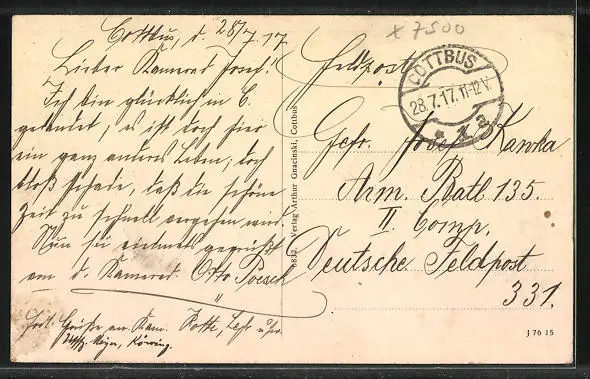 x 7500
Cottbus, d. 28/7.17
Lieber Kamerad Josef!
Ich bin glücklich in C.
gelandet, es ist doch hier
ein ganz anderes Leben, doch
bloß schade, daß die schöne
Zeit zu schnell vergehen wird.
Nun sei vielmals gegrüßt
von d. Kamerad Otto Poesch
Herl. Grüße an Kam. Kotte,
Feldpost
COTTBUS
28.7.17.11-12V.
* 1 a
Gefr. Josef Kawka
Arm. Batl 135.
II. Comp.
Deutsche Feldpost
331.
6832. Verlag Arthur Gnacinski, Cottbus
J 76 15